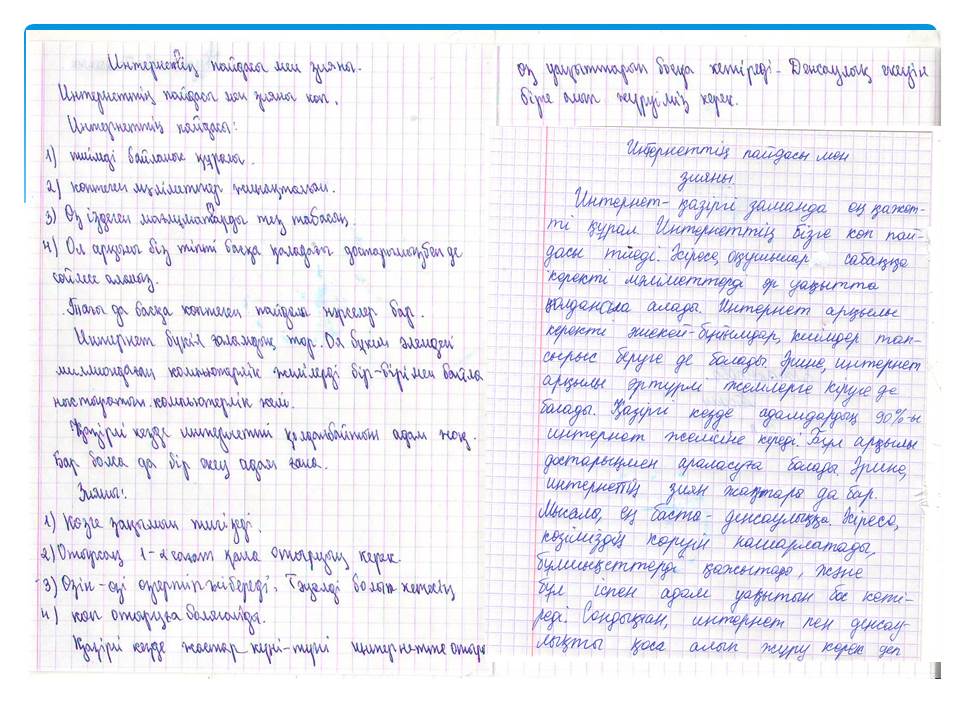 Интернеттің пайдасы мен зияны.
Интернеттің пайдасы мен зияны көп.
Интернеттің пайдасы:
1) тиімді байланыс құралы.
2) көптеген мәліметтер жинақталған.
3) Өз іздеген мағлұматтарды тез табасың.
4) Ол арқылы біз тіпті басқа қаладағы достарымызбен де
сөйлесе аламыз.
Тағы да басқа көптеген пайдалы нәрселер бар.
Интернет бүкіл ғаламдық тор. Ол бүкіл әлемдегі
миллиондаған компьютерлік желілерді бір-бірімен байла
ныстыратын компьютерлік желі.
Қазіргі кезде интернетті қолданбайтын адам жоқ.
Бар болса да бір екеу адам ғана.
Зияны:
1) Көзге зақымын тигізеді.
2) Отырсаң 1-2 сағат қана отыруың керек.
3) Өзін-өзі өзгертіп жібереді. Тәуелді болып кетесің
4) көп отыруға болмайды.
Қазіргі кезде жастар күні-түні интернетте отыра
өз уақыттарын босқа кетіреді. Денсаулық екеуін
бірге алып жүруіміз керек.
Интернеттің пайдасы мен
зияны
Интернет - қазіргі заманда ең қажет-
ті құрал. Интернеттің бізге көп пай-
дасы тиеді. Әсіресе, оқушылар сабаққа
керекті мәліметтерді әр уақытта
қолдануға алады. Интернет арқылы
керекті жиекей-бұйымдар, киімдер тап-
сырыс беруге де болады. Әрине, интернет
арқылы әртүрлі желілерге кіруге де
болады. Қазіргі кезде адамдардың 90%-ы
интернет желісіне кереді. Бұл арқылы
достарыңмен араласуға болады. Әрине,
интернеттің зиян жақтары да бар.
Мысалы, ең басты - денсаулыққа. Әсіресе,
көзіміздің көруін нашарлатады,
бұлшықеттерді қажытады, және
бұл іспен адам уақытын бос кеті-
реді. Сондықтан, интернет пен денсау-
лықты қоса алып жүру керек деп